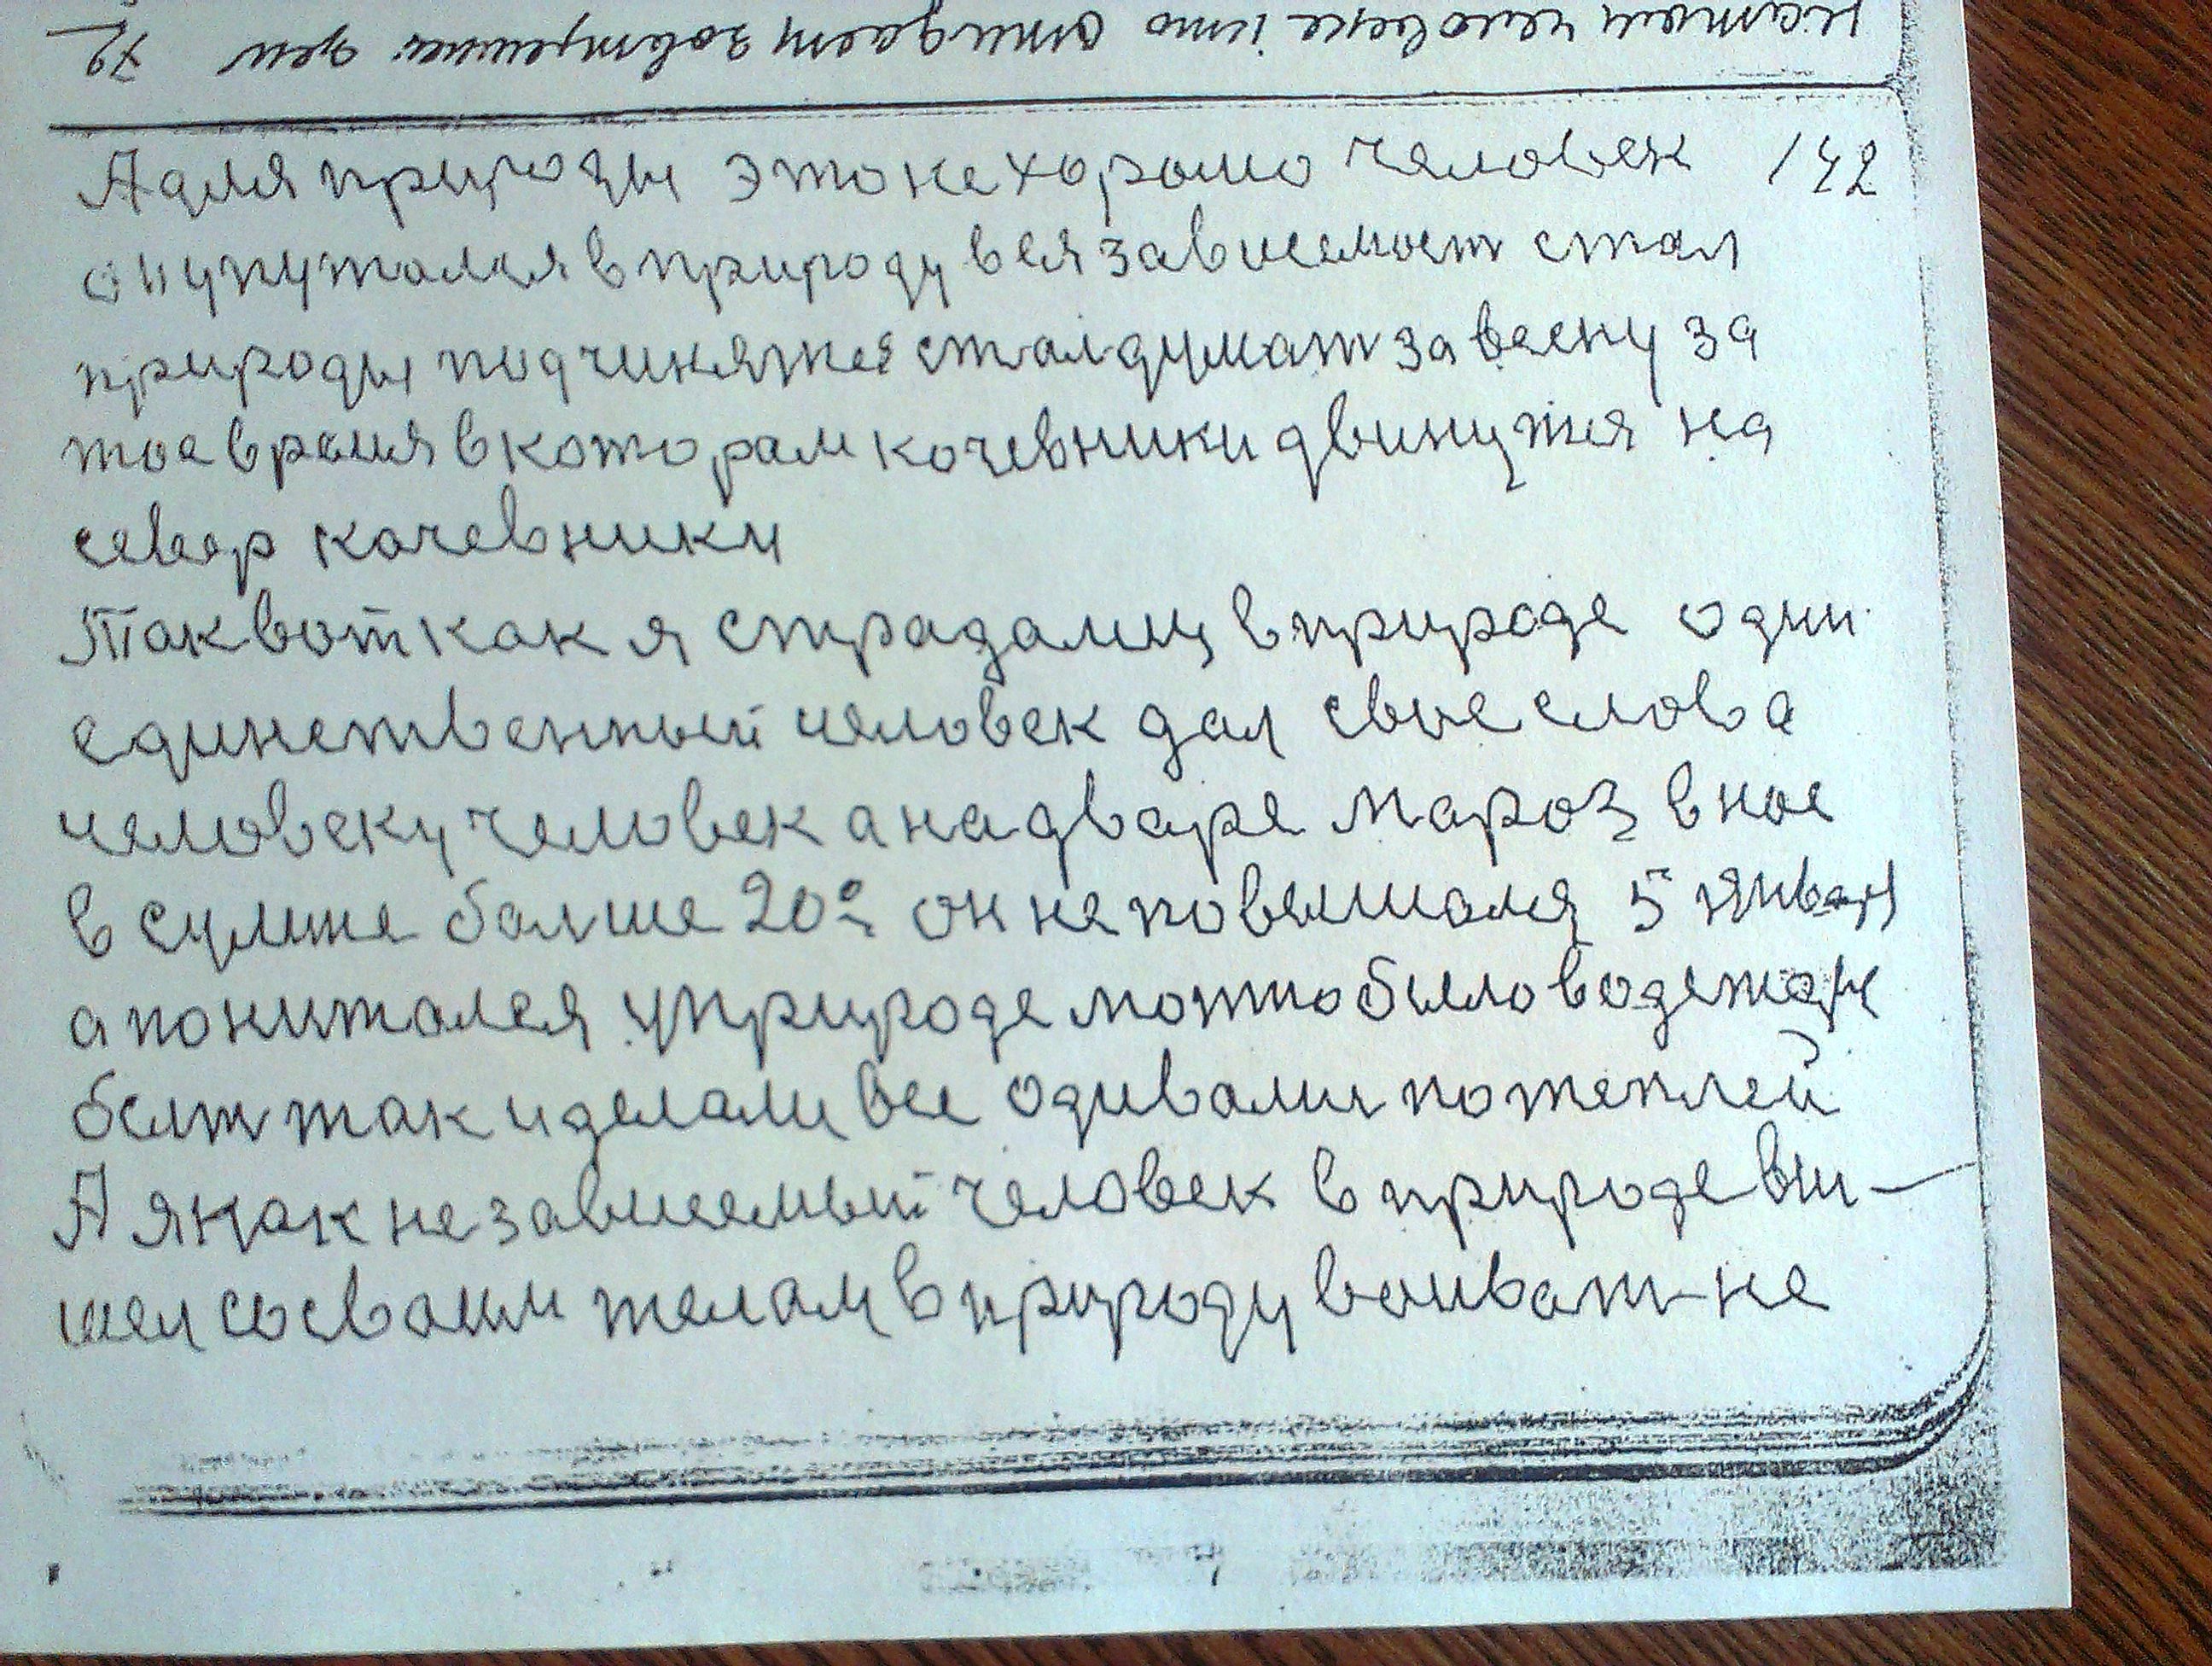 человек что ожидает завтрешний ден 72
А для природы это не хорошо человек 142
он упутался в природу в ея зависемост стал
природы подчинятся стал думат за весну за
тое время в котором кочевники двинутся на
север кочевники
Так вот как я страдалиц в природе один
единственный человек дал свое слова
человеку человек а на дваре мароз в ное
в сумме болше 20° он не повышался 5 январ
а понижался у природе можно было в одежде
быт так и делали все одивалис потеплей
А я как независемый человек в природе вы—
шел со своим телам в природу воивать не